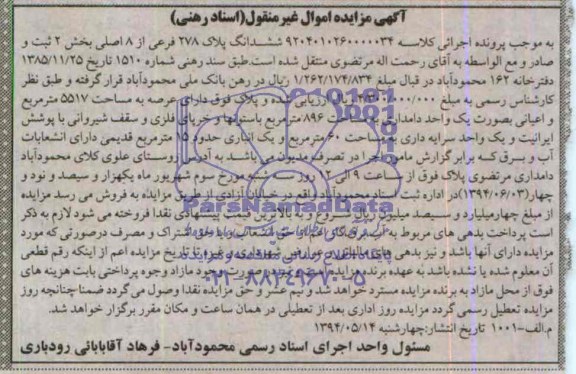 آگهی مزایده اموال غیرمنقول(اسناد رهنی)
به موجب پرونده اجرائی کلاسه ۹۲۰۴۰۱۰۲۶۰۰۰۰۰۳۴ ششدانگ پلاک ۲۷۸ فرعی از ۸ اصلی بخش ۲ ثبت و
صادر و مع الواسطه به آقای رحمت اله مرتضوی منتقل شده است.طبق سند رهنی شماره ۱۵۱۰ تاریخ ۱۳۸۵/۱۱/۲۵
دفترخانه ۱۶۲ محمودآباد در قبال مبلغ ۱/۲۶۲/۱۷۴/۸۳۴ ریال در رهن بانک ملی محمودآباد قرار گرفته و طبق نظر
کارشناس رسمی به مبلغ ریال ارزیابی شده و پلاک فوق دارای عرصه به مساحت ۵۵۱۷ مترمربع
و اعیانی بصورت یک واحد دامداری ۸۹۶ مترمربع باستونها و خرپای فلزی و سقف شیروانی با پوشش
ایرانیت و یک واحد سرایه داری به مساحت ۶۰ مترمربع و یک انباری حدود ۱۵ مترمربع قدیمی دارای انشعابات
آب و برق که برابر گزارش مامور اجرا در تصرف مدیون می باشد به آدرس روستای علوی کلای محمودآباد
دامداری مرتضوی پلاک فوق از ساعت ۹ الی ۱۲ روز سه شنبه مورخ سوم شهریور ماه یکهزار و سیصد و نود و
چهار(۱۳۹۴/۰۶/۰۳)در اداره ثبت اسناد محمودآباد واقع در خیابان آزادی از طریق مزایده به فروش می رسد مزایده
از مبلغ چهارمیلیارد و سیصد میلیون ریال شروع و به بالاترین قیمت پیشنهادی نقدا فروخته می شود لازم به ذکر
است پرداخت بدهی های مربوط به آب، برق، گاز اعم از حق انشعاب و یا حق اشتراک و مصرف درصورتی که مورد
مزایده دارای آنها باشد و نیز بدهی های مالیاتی و عوارض شهرداری و غیره تا تاریخ مزایده اعم از اینکه رقم قطعی
آن معلوم شده یا نشده باشد به عهده برنده مزایده است و نیز در صورت وجود مازاد وجوه پرداختی بابت هزینه های
فوق از محل مازاد به برنده مزایده مسترد خواهد شد و نیم عشر و حق مزایده نقدا وصول می گردد ضمنا چنانچه روز
مزایده تعطیل رسمی گردد مزایده روز اداری بعد از تعطیلی در همان ساعت و مکان مقرر برگزار خواهد شد.
م.الف-۱۰۰۱ تاریخ انتشار:چهارشنبه ۱۳۹۴/۰۵/۱۴
مسئول واحد اجرای اسناد رسمی محمودآباد- فرهاد آقابابائی رودباری
ParsNamadData
۰۲۱-۸۸۳۴۹۶۷۰-۵